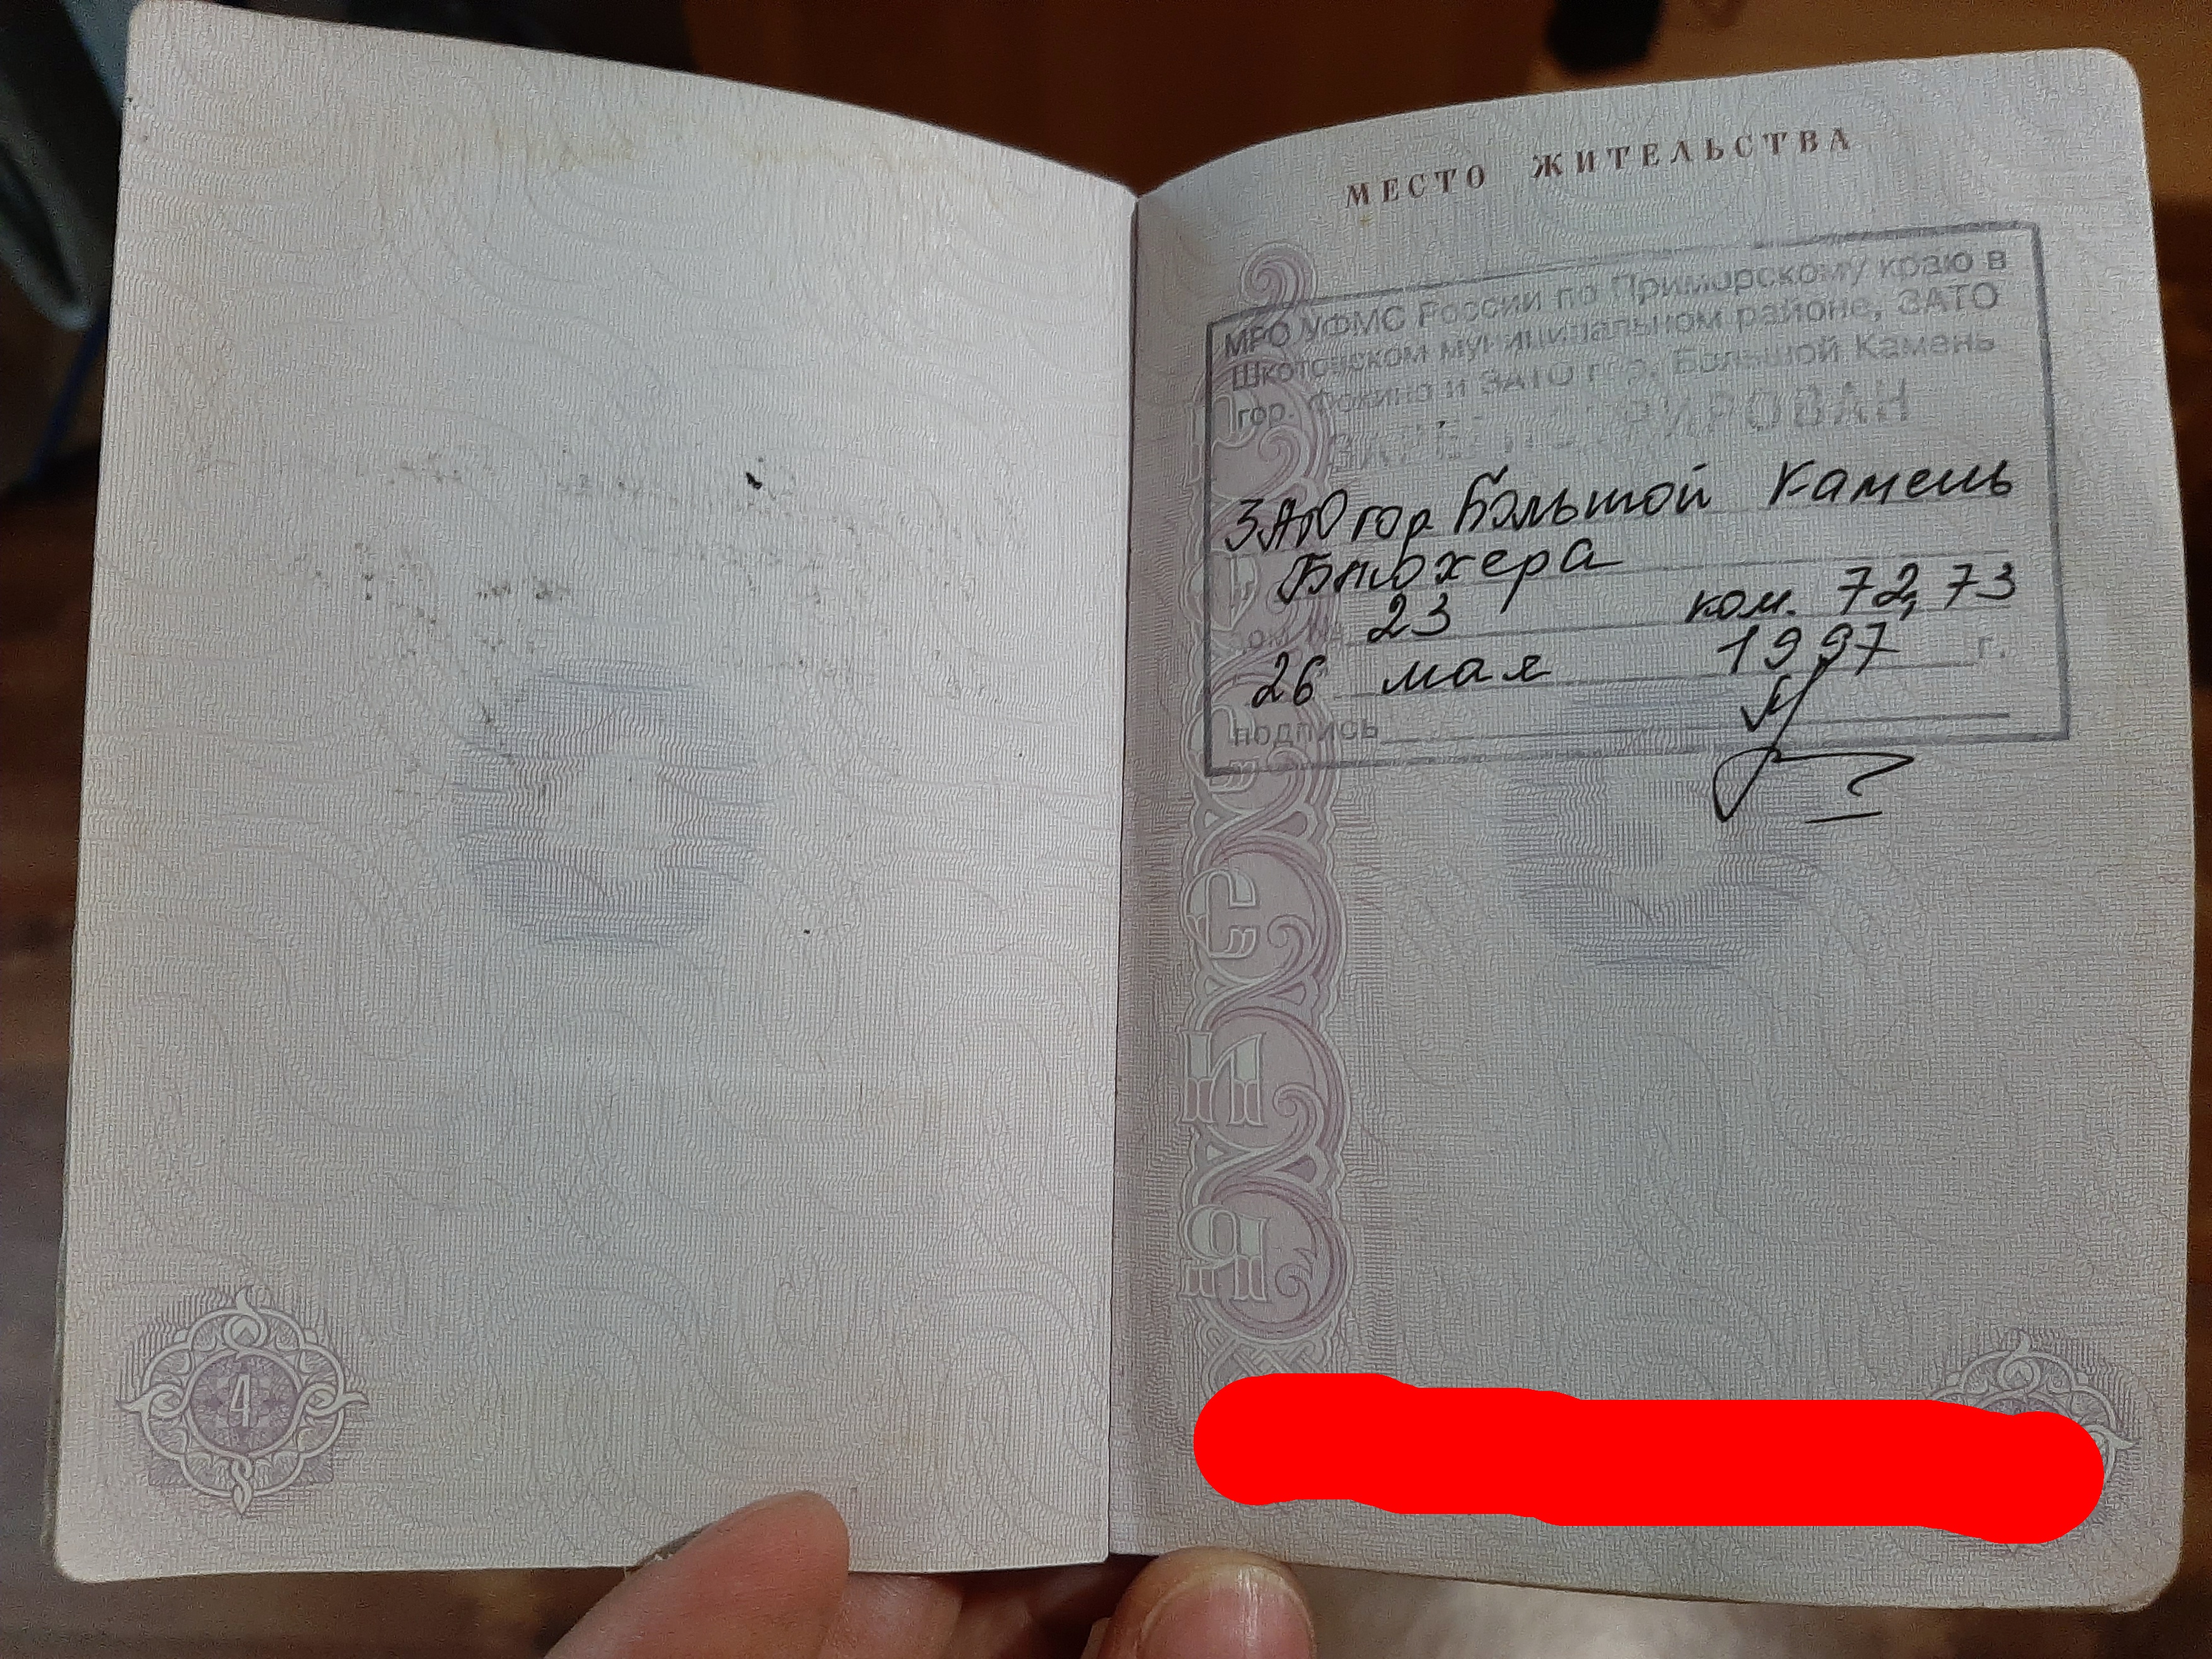 МЕСТО ЖИТЕЛЬСТВА
МРО УФМС России по Приморскому краю в
Шкотовском муниципальном районе, ЗАТО
гор. Фокино и ЗАТО гор. Большой Камень
ЗАРЕГИСТРИРОВАН
ЗАТО гор Большой Камень
Блюхера
дом № 23 ком. 72, 73
26 мая 1997 г.
подпись
РОССИЯ
4